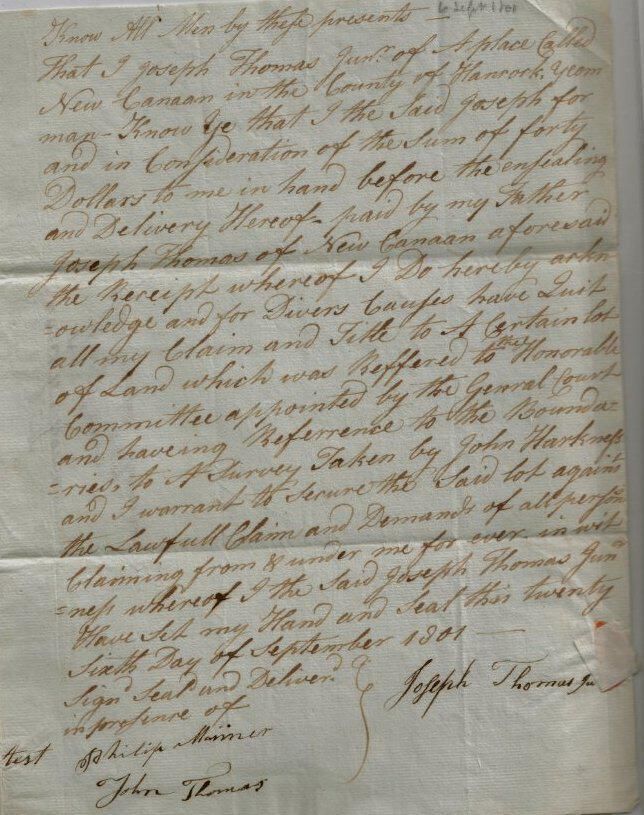 Know All Men by these presents —
That I Joseph Thomas Junr. of A place Called
New Canaan in the County of Hancock, Yeom
man - Know Ye that I the Said Joseph for
and in Consideration of the Sum of forty
Dollars to me in hand before the ensealing
and Delivery Hereof - paid by my Father
Joseph Thomas of New Canaan aforesaid
the Receipt whereof I Do hereby ackn
=owledge and for Divers Causes have Quit
all my Claim and Title to A Certain lot
of Land which was Reffered to the Honorable
Committee appointed by the Genral Court
and haveing Referrence to the Bounda=
=ries, to A Survey Taken by John Harkness
and I warrant to secure the Said lot against
the Lawfull Claim and Demands of all persons
Claiming from & under me for ever. in wit
=ness whereof I the Said Joseph Thomas Junr
Have Set my Hand and Seal this twenty
Sixth Day of September 1801 —
Signd Seald and Deliverd
in presence of
Joseph Thomas Ju
test Philip Mariner
John Thomas